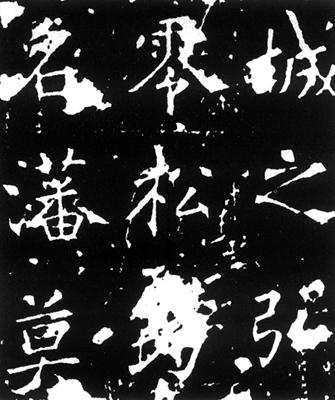 城之弘
松
名藩莫